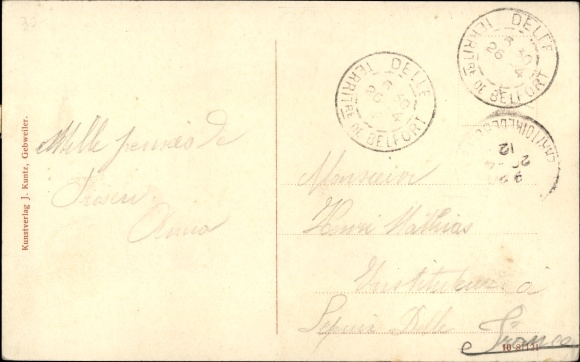 Kunstverlag J. Kuntz, Gebweiler.
Mille pensées de
Anna
DELLE
TERRITRE DE BELFORT
DELLE
TERRITRE DE BELFORT
26
12
Monsieur
Henri Mathias
Instituteur à
Delle
France